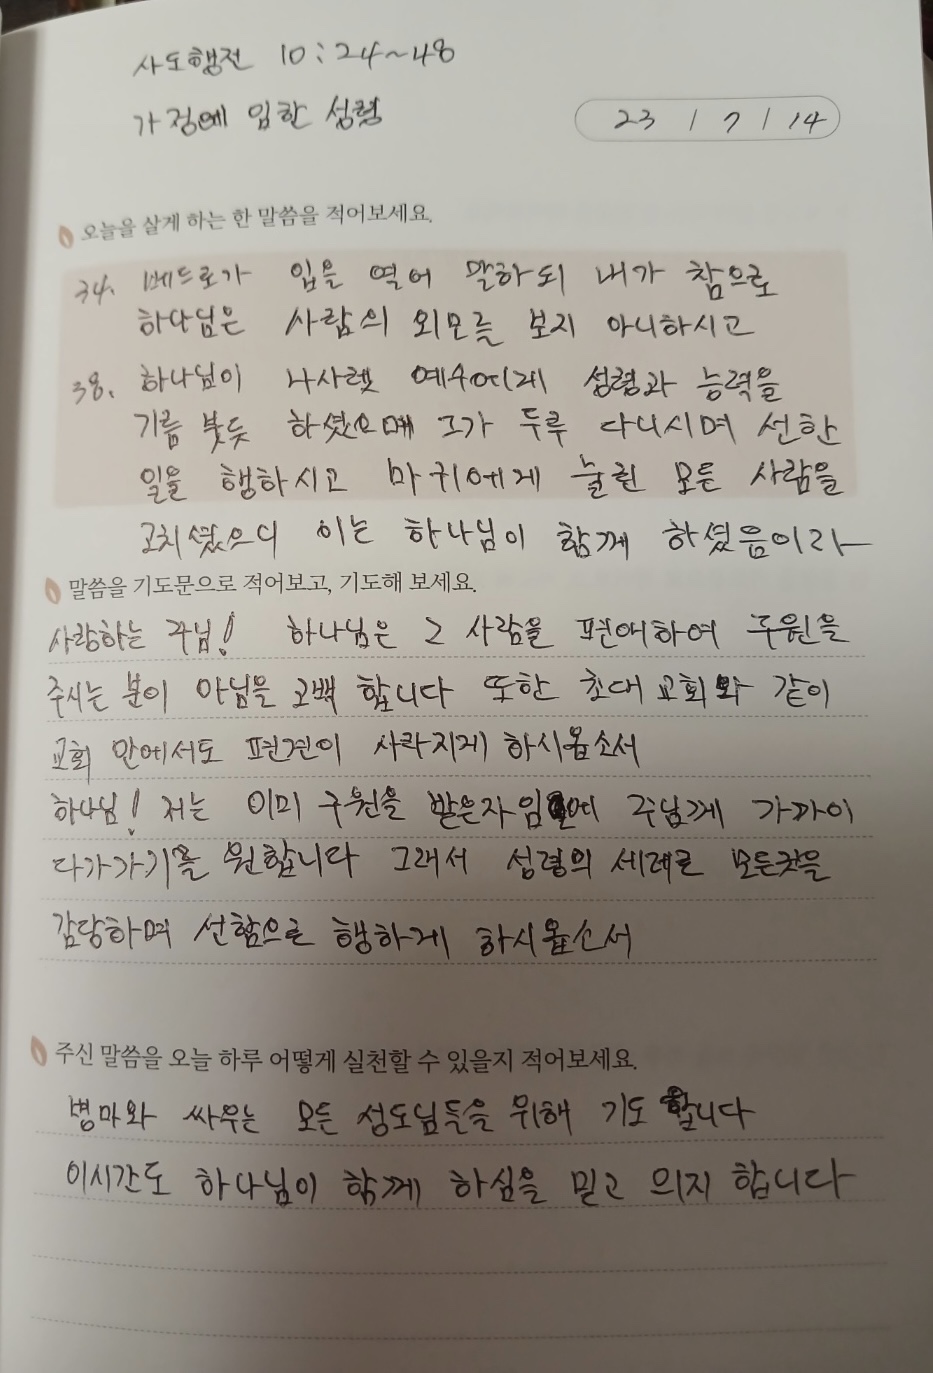 사도행전 10:24~48
가정에 임한 성령
23 / 7 / 14
오늘을 살게 하는 한 말씀을 적어보세요.
34. 베드로가 입을 열어 말하되 내가 참으로
하나님은 사람의 외모를 보지 아니하시고
38. 하나님이 나사렛 예수에게 성령과 능력을
기름 붓듯 하셨으매 그가 두루 다니시며 선한
일을 행하시고 마귀에게 눌린 모든 사람을
고치셨으니 이는 하나님이 함께 하셨음이라
말씀을 기도문으로 적어보고, 기도해 보세요.
사랑하는 주님! 하나님은 그 사람을 편애하여 구원을
주시는 분이 아님을 고백 합니다 또한 초대 교회와 같이
교회 안에서도 편견이 사라지게 하시옵소서
하나님! 저는 이미 구원을 받은자임에 주님께 가까이
다가가기를 원합니다 그래서 성령의 세례로 모든것을
감당하며 선함으로 행하게 하시옵소서
주신 말씀을 오늘 하루 어떻게 실천할 수 있을지 적어보세요.
병마와 싸우는 모든 성도님들을 위해 기도 합니다
이시간도 하나님이 함께 하심을 믿고 의지 합니다